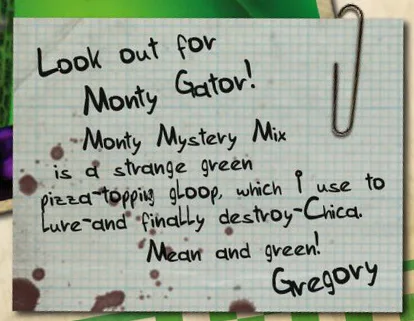 Look out for
Monty Gator!
Monty Mystery Mix
is a strange green
pizza-topping gloop, which I use to
Lure-and finally destroy-Chica.
Mean and green!
Gregory